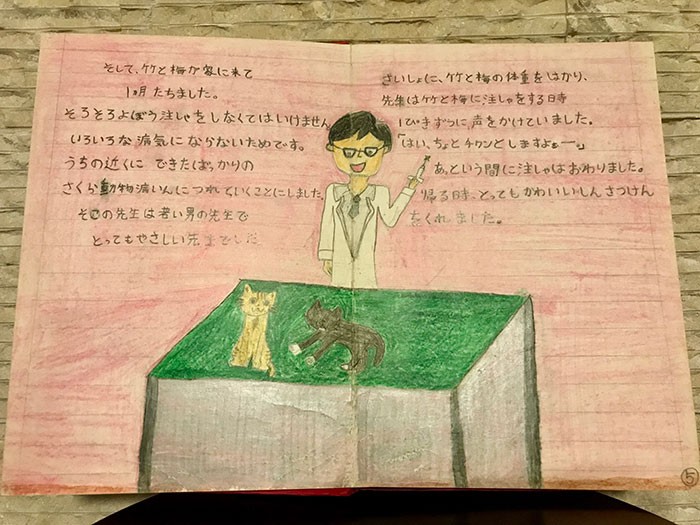 そして、竹と梅が家に来て
1ヶ月たちました。
そろそろよぼう注しゃをしなくてはいけません
いろいろな病気にならないためです。
うちの近くにできたばっかりの
さくら動物病いんにつれていくことにしました。
そこの先生は若い男の先生で
とってもやさしい先生でした
さいしょに、竹と梅の体重をはかり、
先生は竹と梅に注しゃをする時
1ぴきずつに声をかけていました。
「はい、ちょとチクンとしますよぉー」
あっという間に注しゃはおわりました。
帰る時、とってもかわいいしんさつけん
をくれました。
5